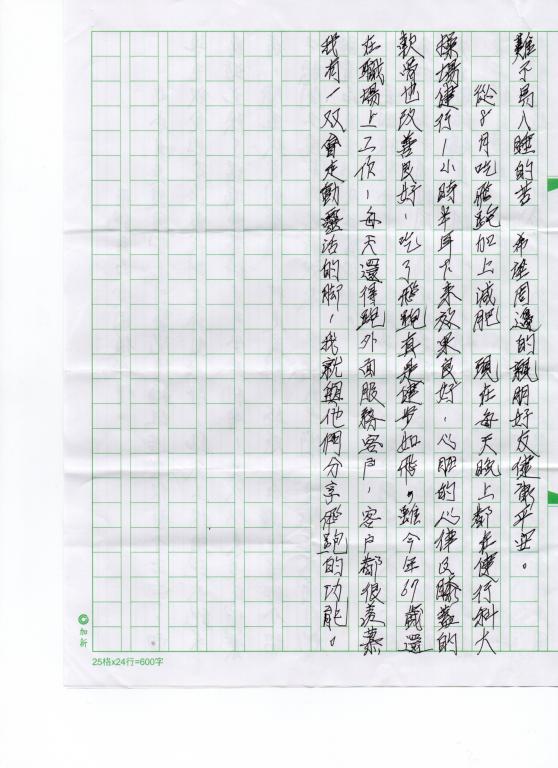 難予易入睡的苦 希望周邊的親朋好友健康平安。
從8月吃飛跑加上減肥 現在每天晚上都在健行科大
操場健行1小時半耳下來效果良好,心肥的心律以膝蓋的
軟骨也改善良好,吃了飛跑真是健步如飛,雖今年67歲還
在職場上工作,每天還得跑外面服務客戶,客戶都很羨慕
我有一双會走動靈活的腳,我就與他們分享飛跑的功能。
加新
25格x24行=600字